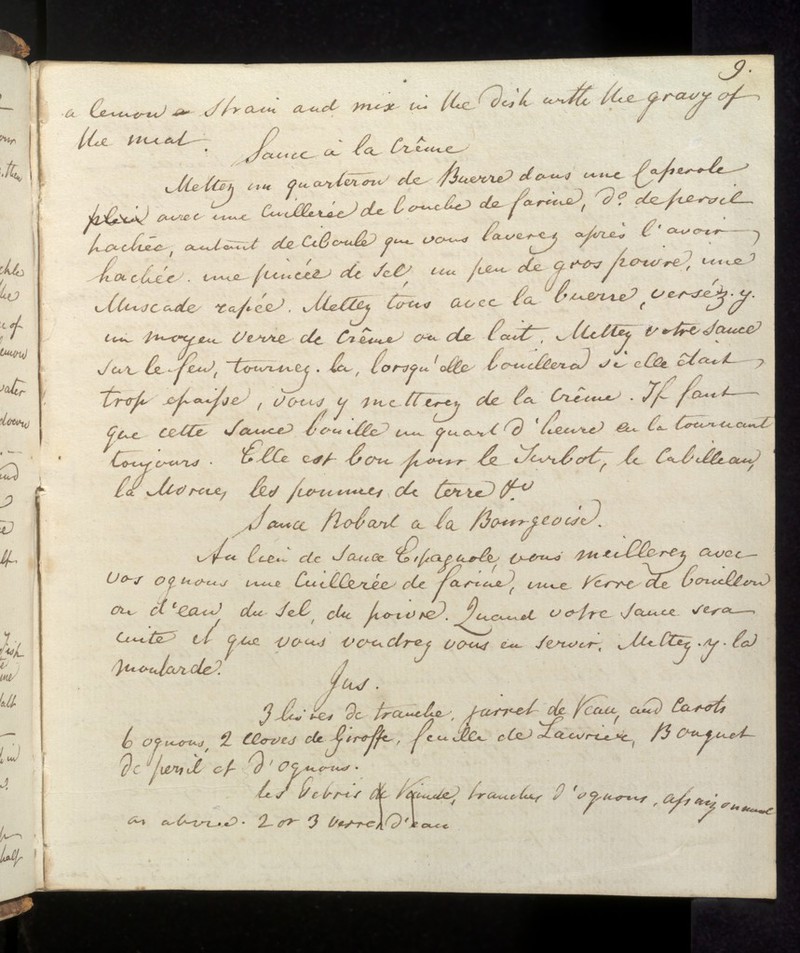 9.
a lemon strain and mix in the dish with the gravy of
the meat.
Sauce à la Crême
Mettez un quarteron de Buerre dans une Caserole
plein avec une Cuillerée de bouche de farine, Do. de persil
hachée, autant de Ciboule que vous laverez après l'avoir
hachée. une pincée de Sel, un peu de gros poivre, une
Muscade rapée. Mettez tous avec la buerre, verséz.y.
un moyen Verre de Crême ou de lait. Mettez votre Sauce
sur le feu, tournez.la, lorsqu'elle bouillera si elle êtait
trop epaisse, vous y metterez de la Crême. If faut
que cette Sauce bouille un quart d'heure en la tournant
toujours. Elle est bon pour le Turbot, le Cabilleau,
la Morue, les pommes de terre &c
Sauce Robart a la Bourgeoise.
Au lieu de Sauce Espagnole, vous meillerez avec
vos ognons une Cuillerée de farine, une Verre de bouillon
ou d'eau, du Sel, du poivre. Quand votre Sauce sera
cuite et que vous voudrez vous en servir. Mettez.y.la
moutarde.
Jus.
3 livres de tranche, jarret de Veau, and Carots
6 ognons, 2 cloves de Giroffe, feuille de Laurier, Bouquet
de persil et d'ognons.
les Debris de Viande, tranches d'ognons, assaizonnement
as above. 2 or 3 verres d'eau